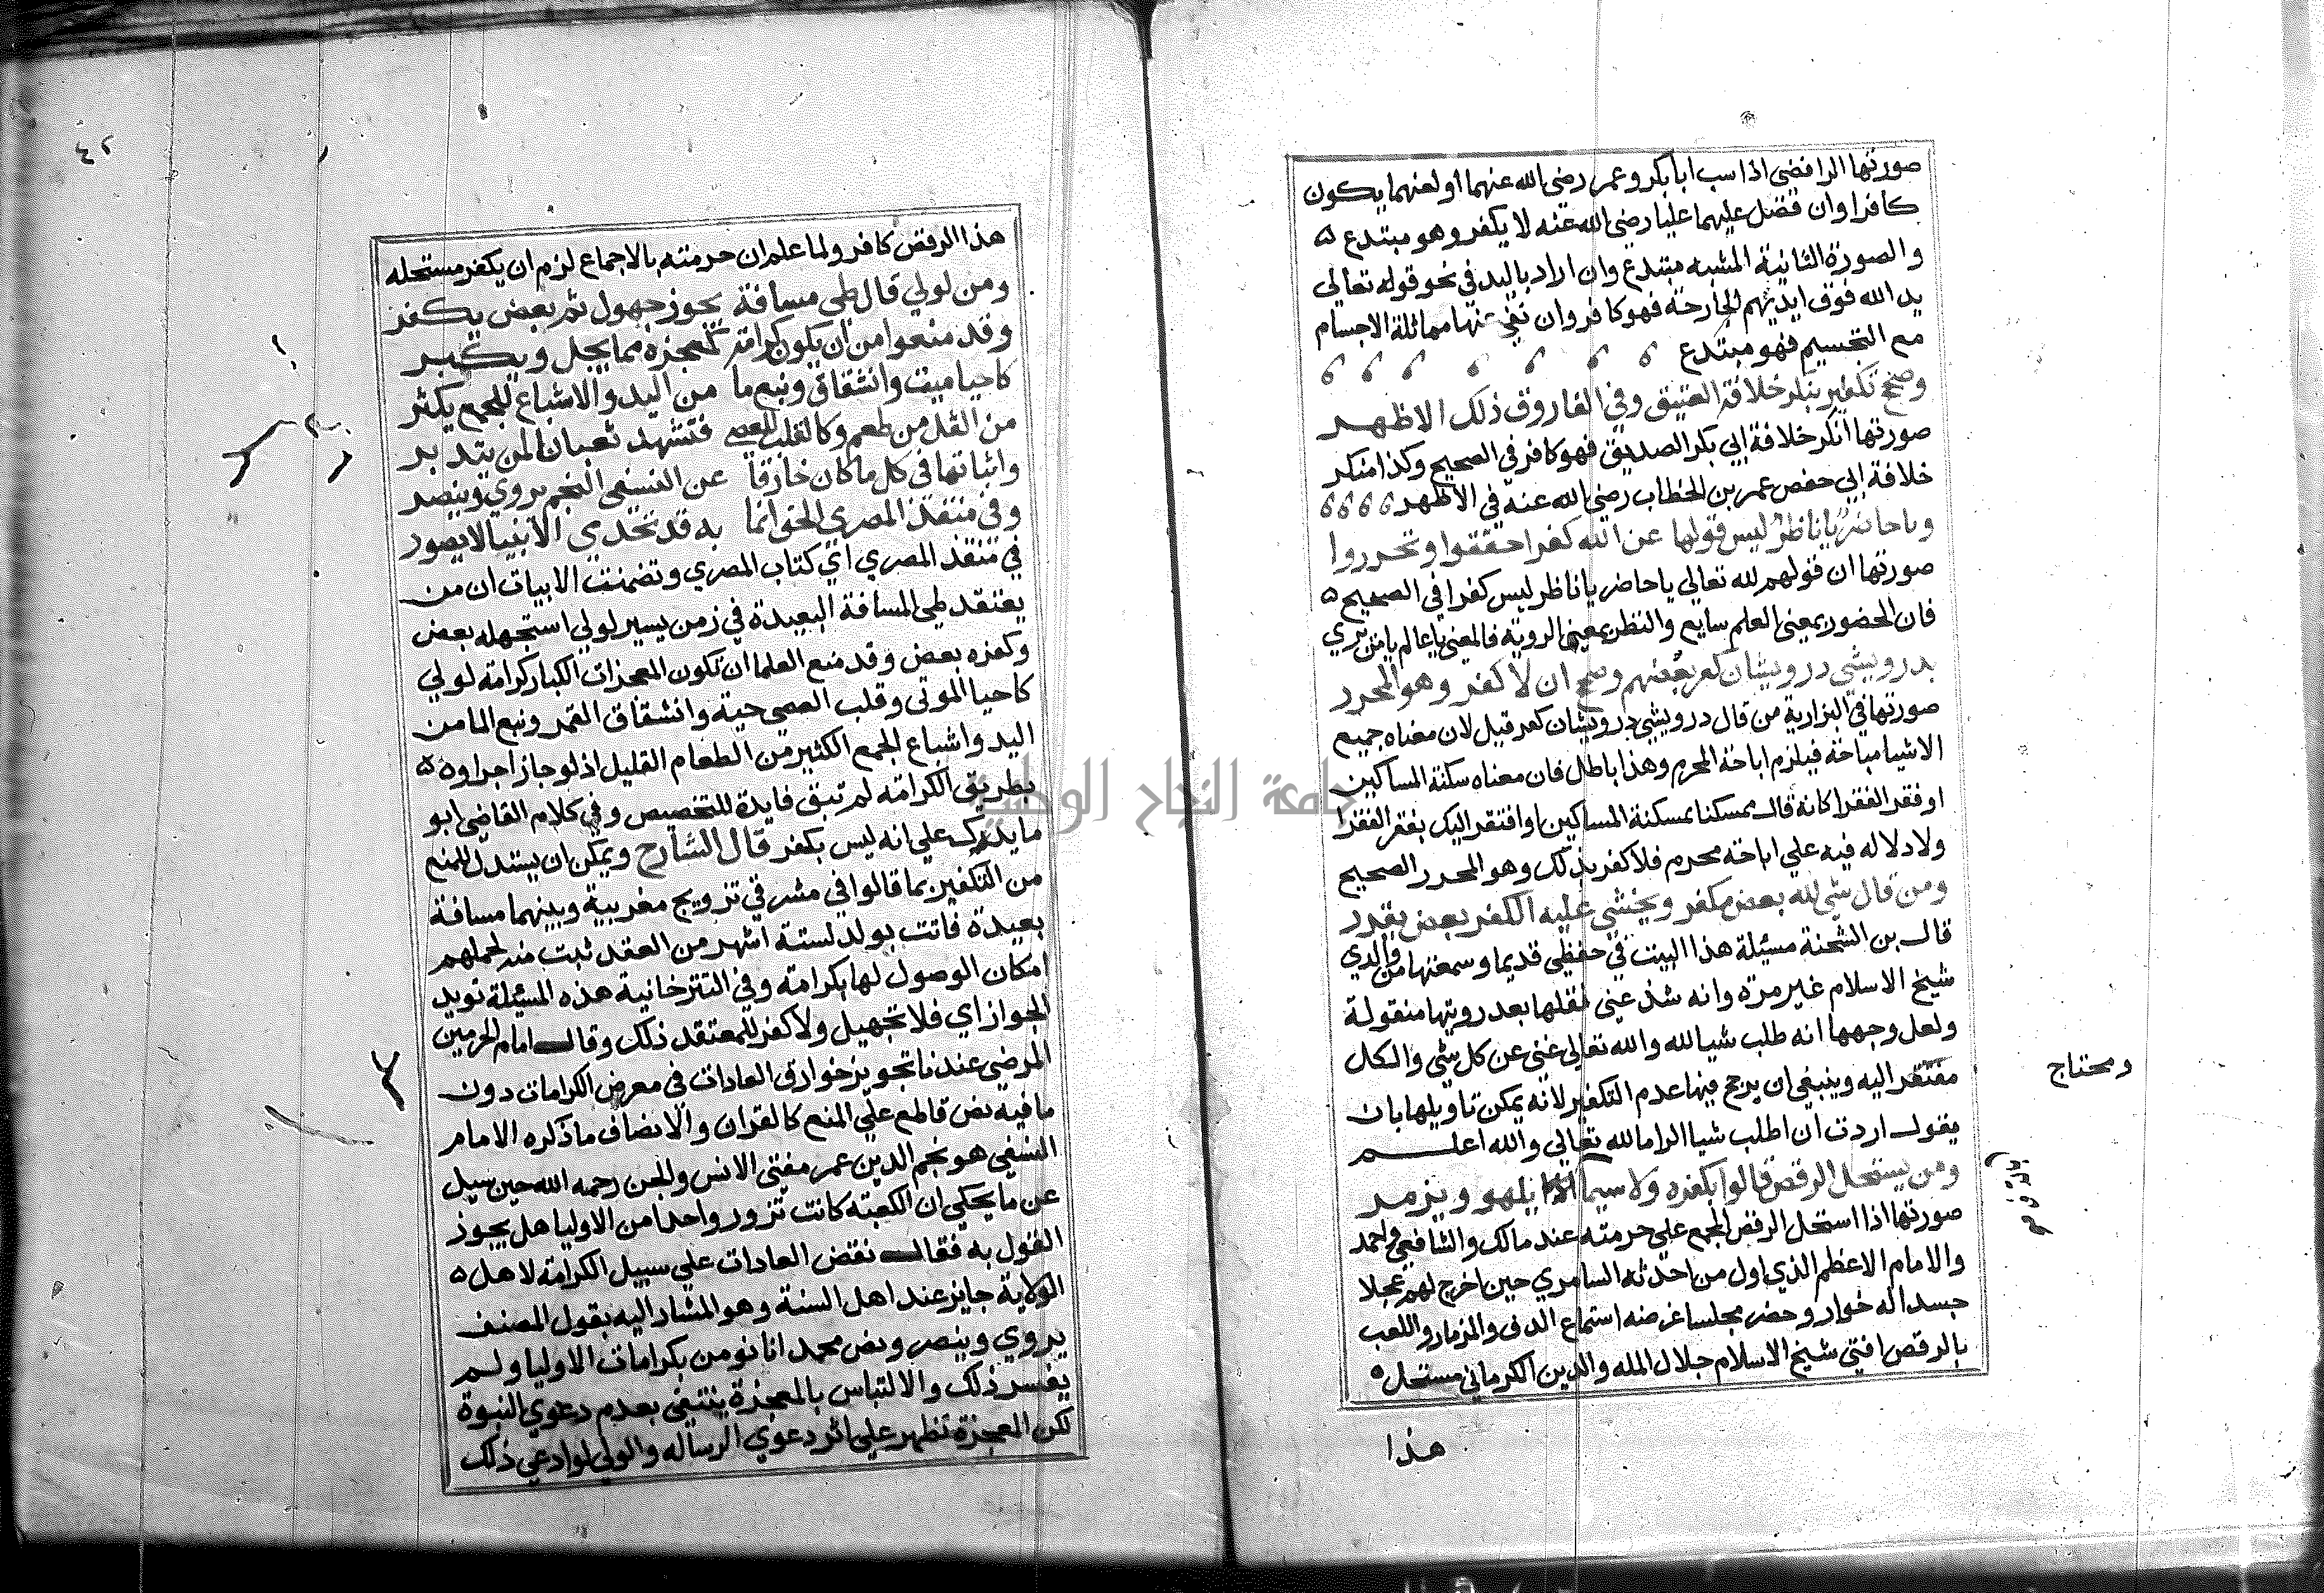 صورتها الرافضي اذا سب ابا بكر وعمر رضي الله عنهما او لعنهما يكون
كافرا وان فضل عليهما عليا رضي الله عنه لا يكفر وهو مبتدع
والصورة الثانية المشبه مبتدع وان اراد باليد في نحو قوله تعالى
يد الله فوق ايديهم الجارحة فهو كافر وان نفى عنها مماثلة الاجسام
مع التجسيم فهو مبتدع
وصحح تكفير بنكر خلافة العتيق وفي الفاروق ذلك الاظهر
صورتها انكر خلافة ابي بكر الصديق فهو كافر في الصحيح وكذا منكر
خلافة ابي حفص عمر بن الخطاب رضي الله عنه في الاظهر
ويا حاضر يا ناظر ليس قولها عن الله كفرا حققوا وتحرروا
صورتها ان قولهم لله تعالي يا حاضر يا ناظر ليس كفرا في الصحيح
فان الحضور بمعنى العلم سايع والنظر بمعنى الروية فالمعنى يا عالم يا من يري
بدرويشي درويشان كفر بعضهم وصحح ان لا كفر وهو المحرر
صورتها في البزازية من قال درويشي درويشان كفر قيل لان معناه جميع
الاشيا مباحة فيلزم اباحة المحرم وهذا باطل فان معناه سكنة المساكين
او فقر الفقرا كانه قال تمسكنا بمسكنة المساكين او افتقر اليك بفقر الفقرا
ولا دلاله فيه علي اباحة محرم فلا كفر بذلك وهو المحرر الصحيح
ومن قال شي لله بعض مكفر ويخشى عليه الكفر بعض يقرر
قال بن الشحنة مسئلة هذا البيت في حفظي قديما وسمعتها من والدي
شيخ الاسلام غير مرة وانه شذ عني نقلها بعد رويتها منقولة
ولعل وجهها انه طلب شيا لله والله تعالى غني عن كل شي والكل
مفتقر اليه وينبغي ان يرجح فيها عدم التكفير لانه يمكن تاويلها بان
يقول اردت ان اطلب شيا اكراما لله تعالي والله اعلم
ومن يستحل الرقص قالوا بكفره ولا سيما بالدف يلهو ويزمر
صورتها اذا استحل الرقص المجمع على حرمته عند مالك والشافعي واحمد
والامام الاعظم الذي اول من احدثه السامري حين اخرج لهم عجلا
جسدا له خوار وحضر مجلسا غرضه استماع الدف والمزمار واللعب
بالرقص افتي شيخ الاسلام جلال المله والدين الكرماني مستحل
هذا
ومحتاج
بالدف صح
٤٢
هذا الرقص كافر ولما علم ان حرمته بالاجماع لزم ان يكفر مستحله
ومن لولي قال طي مسافة يجوز جهول ثم بعض يكفر
وقد منعوا من ان يكون كرامة كمعجزه مما يجل ويكبر
كاحيا ميت وانشقاق ونبع ما من اليد والاشباع للجمع يكثر
من القل من طعم وكالقلب للعصى فتشهد ثعبانا لمن يتدبر
واثباتها في كل ما كان خارقا عن النسفي النجم يروي وينصر
وفي منتقذ المصري الحق انما به قد تحدي الانبيا لا يصور
في منتقذ المصري اي كتاب المصري وتضمنت الابيات ان من
يعتقد طي المسافة البعيدة في زمن يسير لولي استجهله بعض
وكفره بعض وقد منع العلما ان تكون المعجزات الكبار كرامة لولي
كاحيا الموتى وقلب العصى حية وانشقاق القمر ونبع الما من
اليد واشباع الجمع الكثير من الطعام القليل اذ لو جاز اجراوه
بطريق الكرامة لم تبق فايدة للتخصيص وفي كلام القاضي ابو
ما يدرك علي انه ليس بكفر قال الشارح ويمكن ان يستدل للمنع
من التكفير بما قالوا في مشرقي تزويج مغربية وبينهما مسافة
بعيدة فاتت بولد لستة اشهر من العقد ثبت منه لحملهم
امكان الوصول لها بكرامة وفي التترخانية هذه المسئلة تويد
الجواز اي فلا تجهيل ولا كفر للمعتقد ذلك وقال امام الحرمين
المرضي عندنا تجويز خوارق العادات في معرض الكرامات دون
ما فيه نص قاطع علي المنع كالقران والانصاف ما ذكره الامام
النسفي هو نجم الدين عمر مفتي الانس والجن رحمه الله حين سيل
عن ما يحكي ان الكعبة كانت تزور واحدا من الاوليا هل يجوز
القول به فقال نقض العادات علي سبيل الكرامة لاهل
الولاية جايز عند اهل السنة وهو المشار اليه بقول المصنف
يروي وينصر ونص محمد انا نومن بكرامات الاوليا ولم
يفسر ذلك والالتباس بالمعجزة ينتفي بعدم دعوي النبوة
لكن المعجزة تظهر علي اثر دعوي الرساله والولي لو ادعي ذلك
جامعة النجاح الوطنية